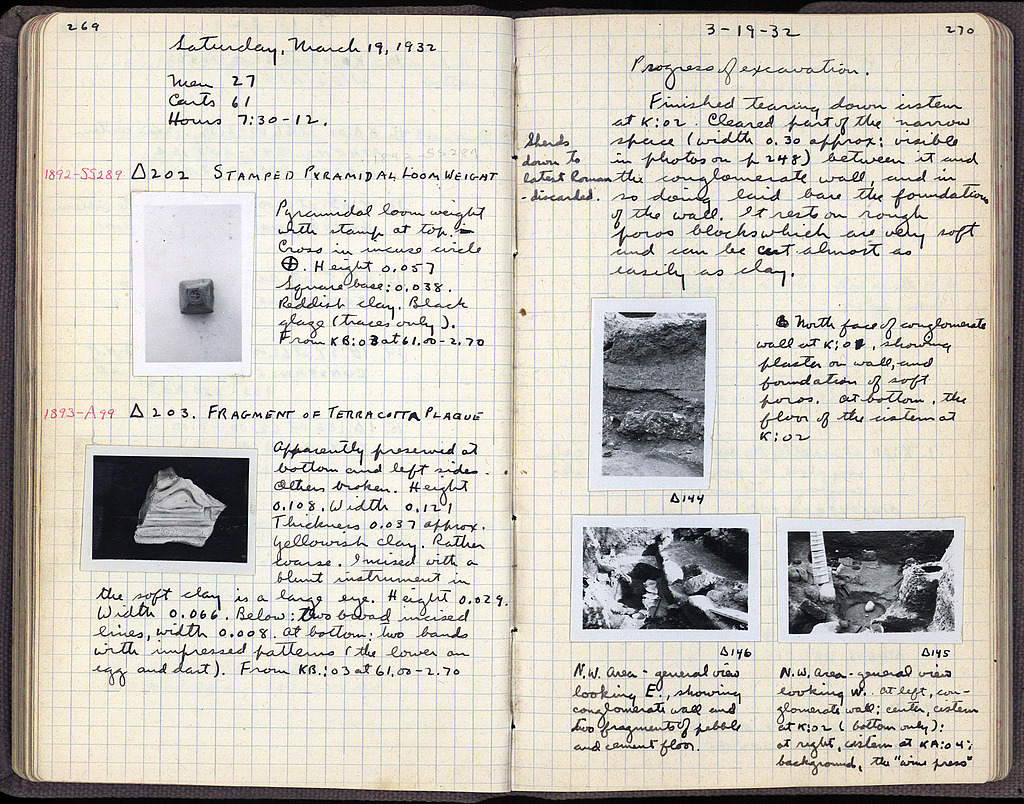 269
Saturday, March 19, 1932
Men 27
Carts 61
Hours 7:30-12.
1892-SS289 Δ202 STAMPED PYRAMIDAL LOOM WEIGHT
Pyramidal loom weight
with stamp at top. -
Cross in incuse circle
⊕. Height 0.057
Square base: 0.038.
Reddish clay. Black
glaze (traces only).
From KB:03 at 61.00-2.70
1893-A99 Δ203. FRAGMENT OF TERRACOTTA PLAQUE
Apparently preserved at
bottom and left sides.
Others broken. Height
0.108. Width 0.121
Thickness 0.037 approx.
Yellowish clay. Rather
coarse. Incised with a
blunt instrument in
the soft clay is a large eye. Height 0.029.
Width 0.066. Below: two broad incised
lines, width 0.008. At bottom: two bands
with impressed patterns (the lower an
egg and dart). From KB:03 at 61.00-2.70
3-19-32
270
Progress of excavation.
Finished tearing down cistern
at K:02. Cleared part of the narrow
space (width 0.30 approx: visible
in photos on p 248) between it and
the conglomerate wall, and in
so doing laid bare the foundations
of the wall. It rests on rough
poros blocks which are very soft
and can be cut almost as
easily as clay.
Sherds
down to
latest Roman
- discarded.
North face of conglomerate
wall at K:02, showing
plaster on wall, and
foundation of soft
poros. At bottom, the
floor of the cistern at
K:02
Δ144
Δ146
N.W. Area - general view
looking E., showing
conglomerate wall and
two fragments of pebble
and cement floor.
Δ145
N.W. Area - general view
looking W. At left, con-
glomerate wall; center, cistern
at K:02 (bottom only):
at right, cistern at KA:04;
background, the "wine press"